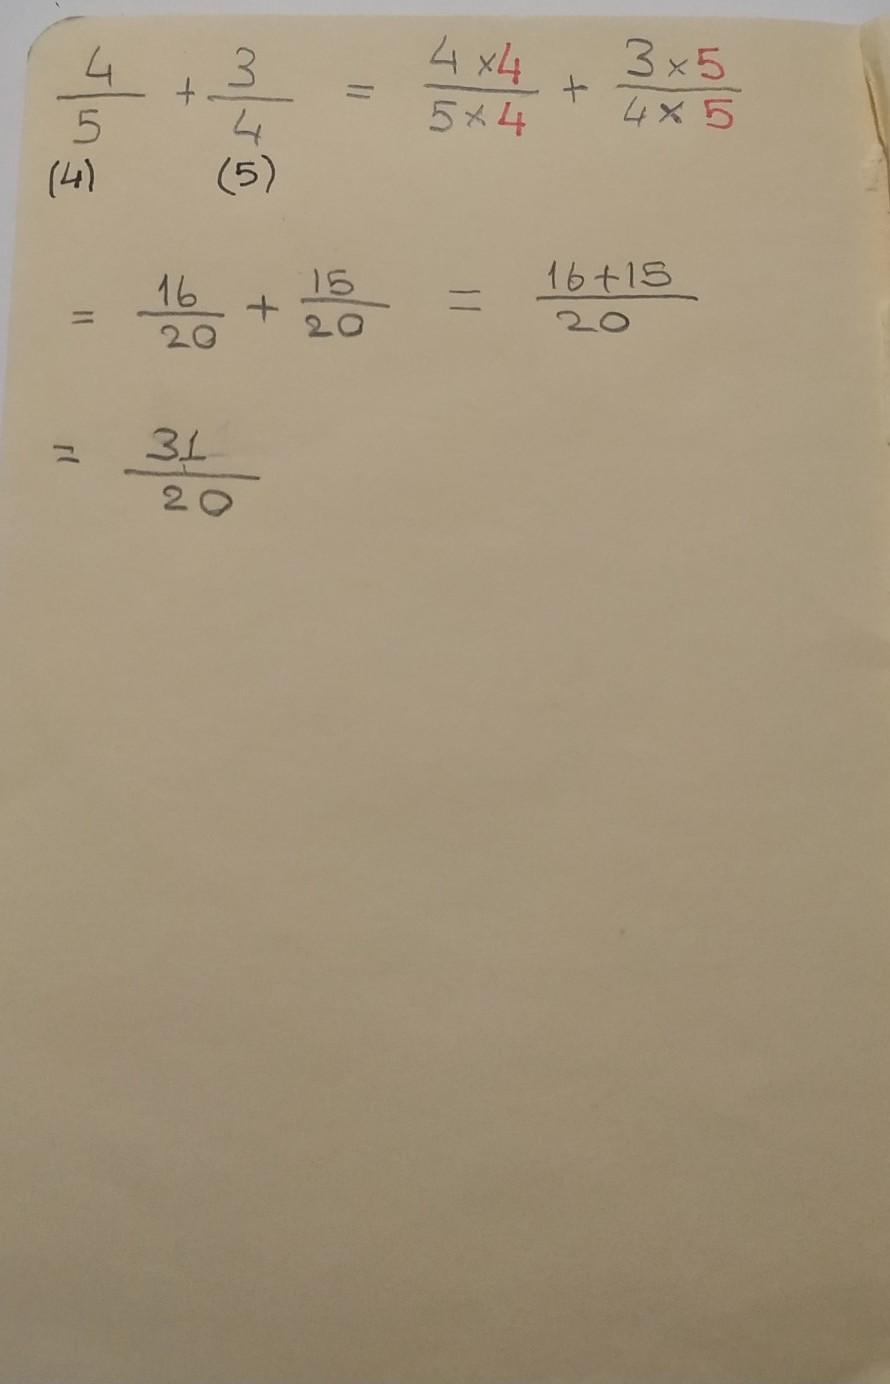 4/5 + 3/4 = 4×4/5×4 + 3×5/4×5
(4) (5)
= 16/20 + 15/20 = 16+15/20
= 31/20